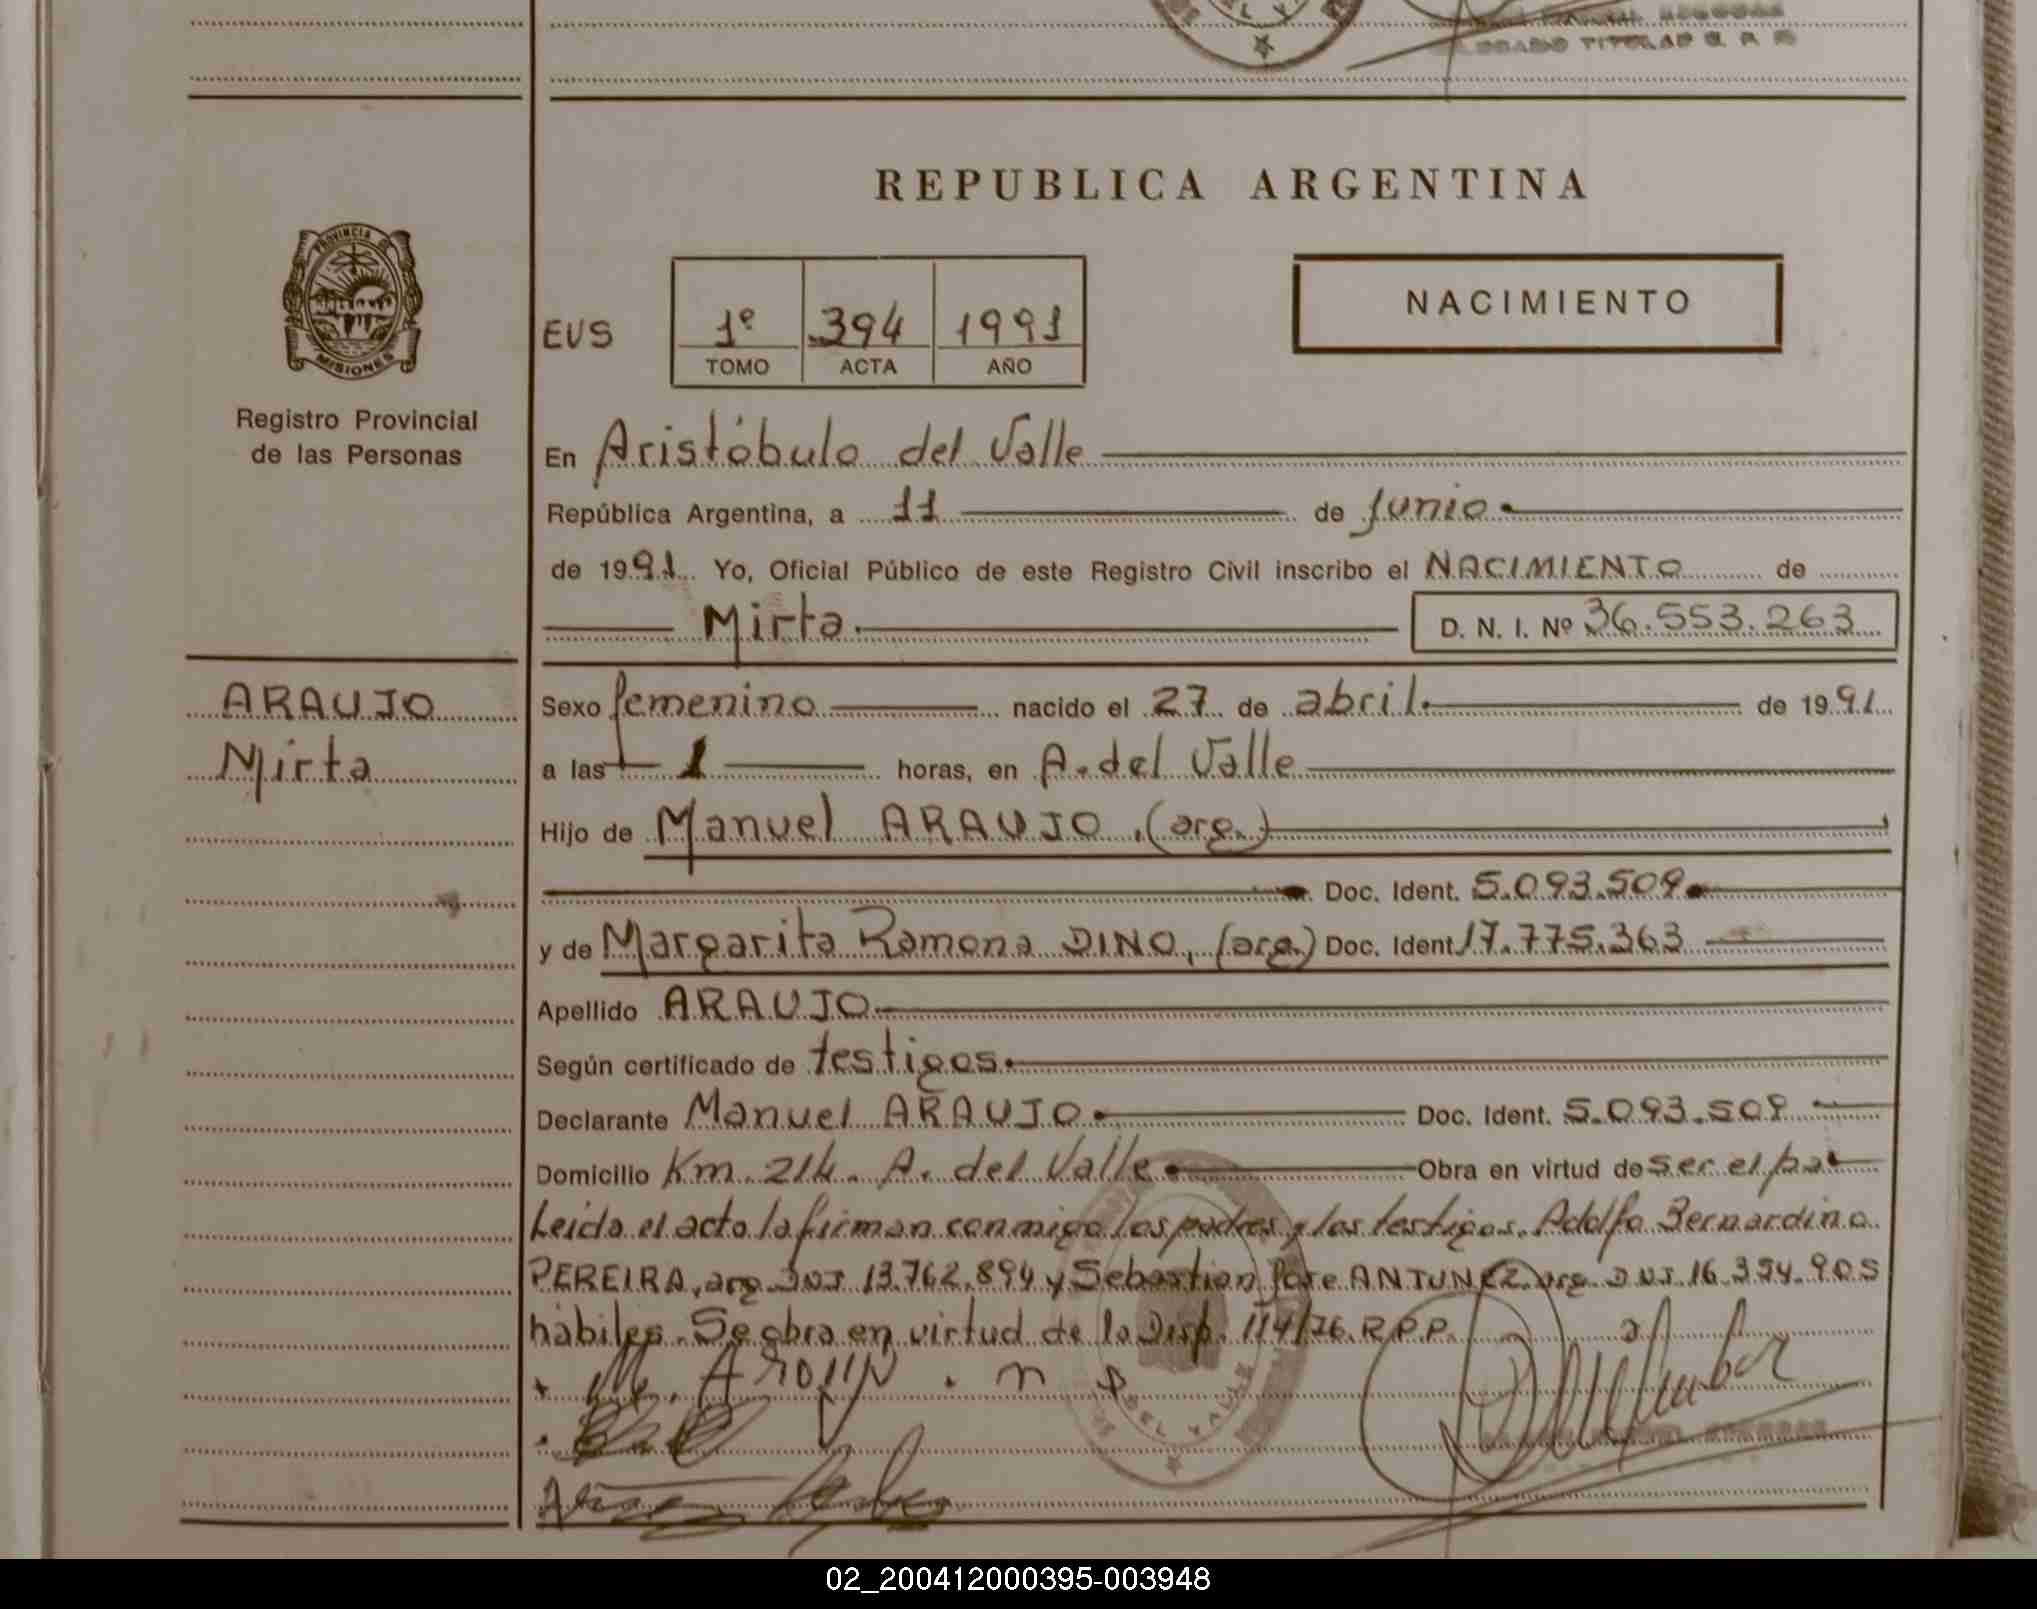 REPUBLICA ARGENTINA
PROVINCIA DE
MISIONES
Registro Provincial
de las Personas
NACIMIENTO
EVS 1º 394 1991
TOMO ACTA AÑO
En Aristóbulo del Valle
República Argentina, a 11 de junio
de 1991 Yo, Oficial Público de este Registro Civil inscribo el NACIMIENTO de
Mirta D. N. I. Nº 36.553.263
ARAUJO
Mirta
Sexo femenino nacido el 27 de abril de 1991
a las 1 horas, en A. del Valle
Hijo de Manuel ARAUJO, (arg.)
Doc. Ident. 5.093.509
y de Margarita Ramona DINO, (arg.) Doc. Ident 17.775.363
Apellido ARAUJO
Según certificado de testigos
Declarante Manuel ARAUJO Doc. Ident. 5.093.509
Domicilio Km. 214. A. del Valle Obra en virtud de ser el pa
Leída el acto la firman conmigo los padres y los testigos. Adolfo Bernardino
PEREIRA, arg. DNI 13.762.894 y Sebastian Jose ANTUNEZ arg. DNI. 16.354.905
hábiles. Se obra en virtud de la Disp. 114/76. R.P.P.
02_200412000395-003948